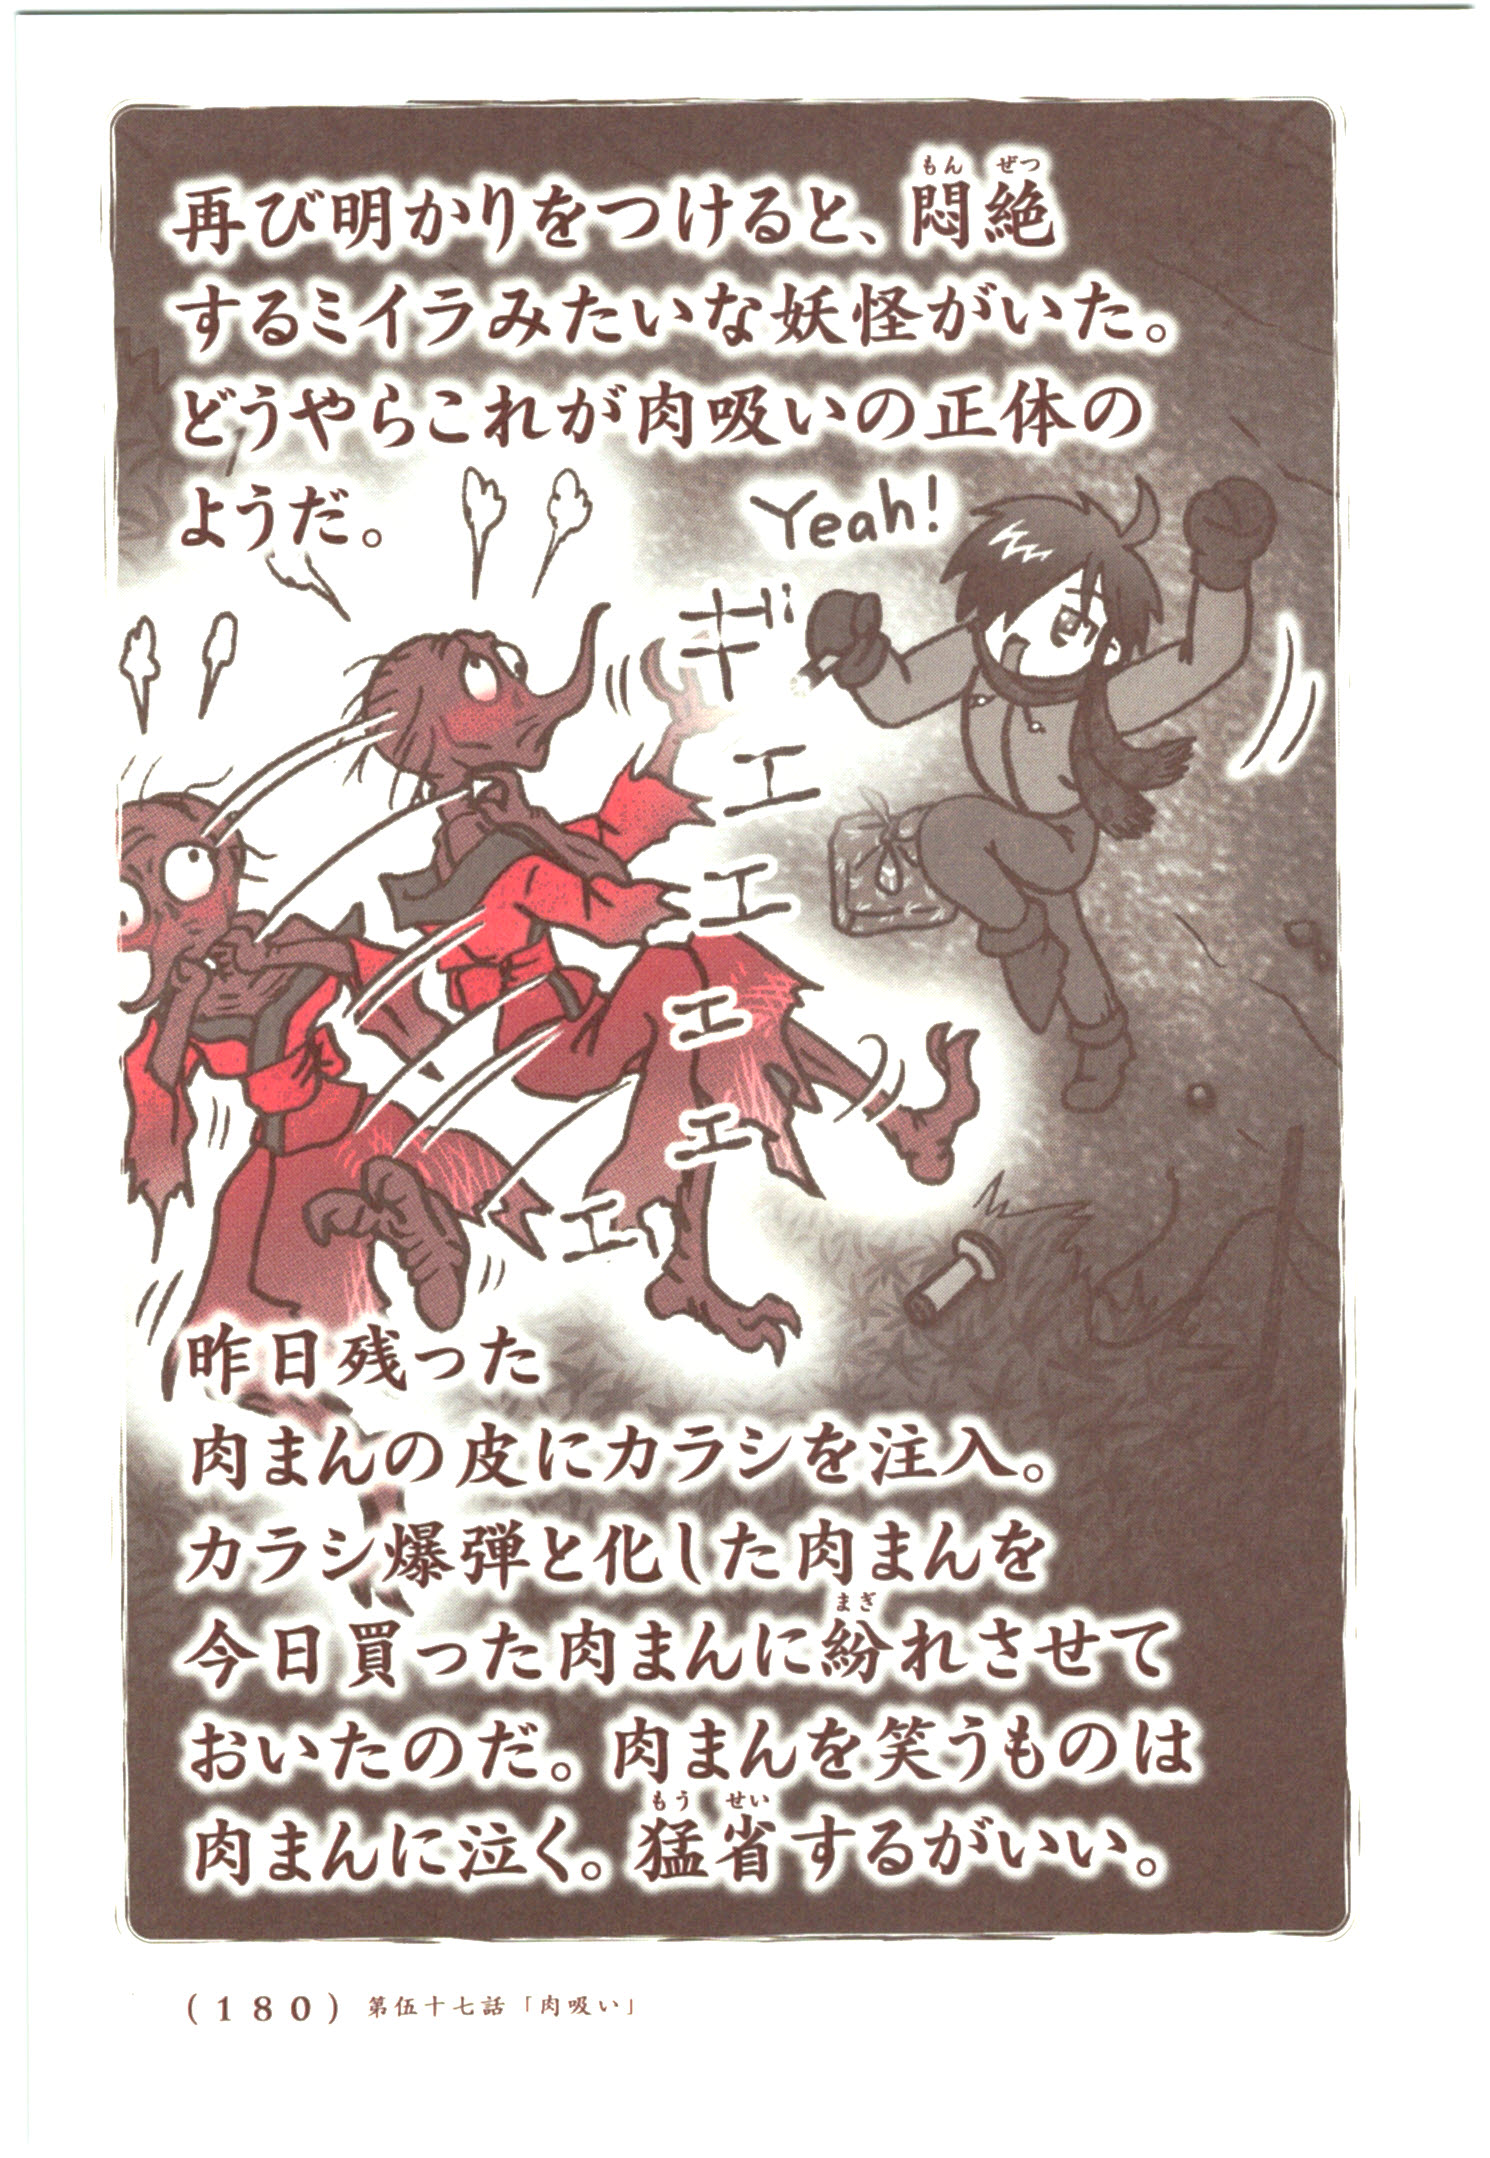 再び明かりをつけると、悶絶
するミイラみたいな妖怪がいた。
どうやらこれが肉吸いの正体の
ようだ。
Yeah!
ギィエエエエエィ
昨日残った
肉まんの皮にカラシを注入。
カラシ爆弾と化した肉まんを
今日買った肉まんに紛れさせて
おいたのだ。肉まんを笑うものは
肉まんに泣く。猛省するがいい。
(180) 第伍十七話「肉吸い」